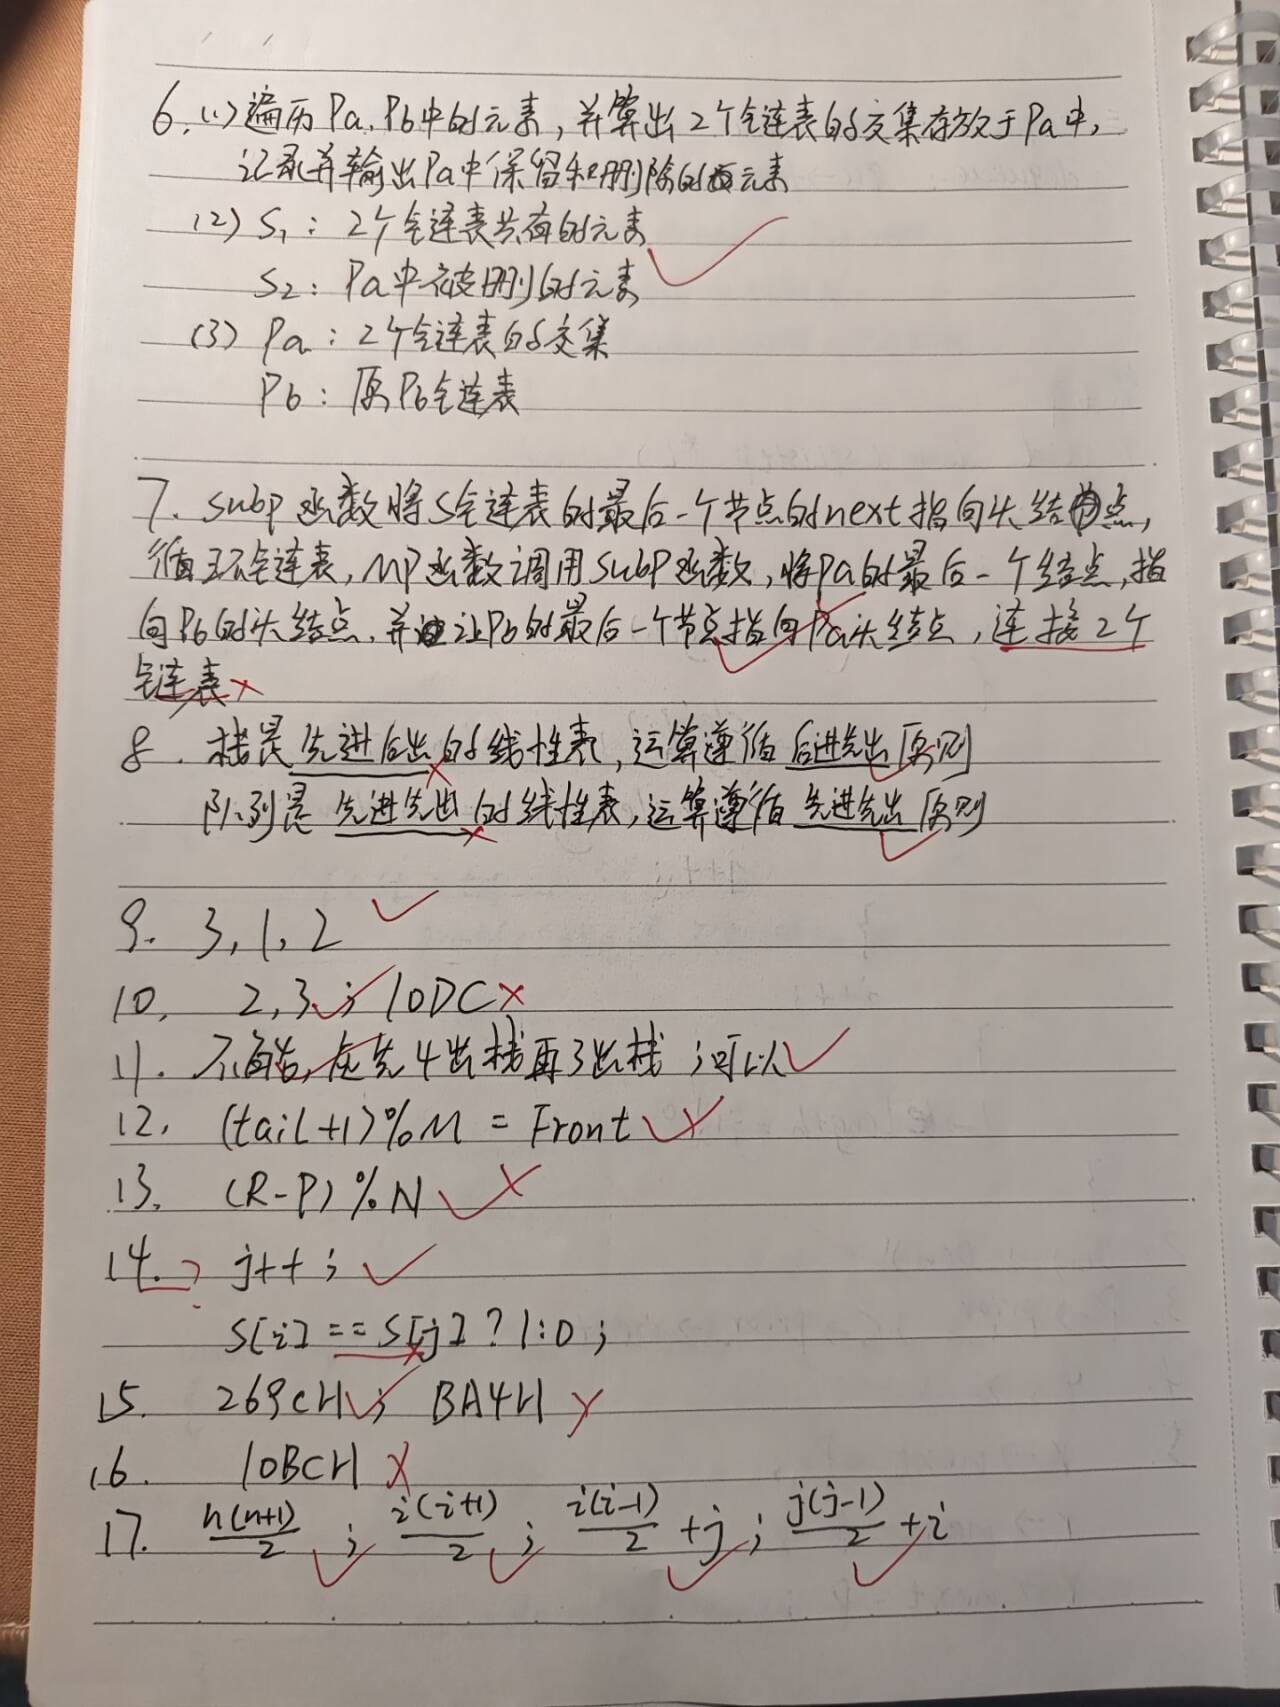 6.(1)遍历Pa,Pb中的元素,并算出2个链表的交集存放于Pa中,
记录并输出Pa中保留和删除的元素
(2) S₁: 2个链表共有的元素
S₂: Pa中被删的元素
(3) Pa: 2个链表的交集
Pb: 原Pb链表
7. subp函数将S链表的最后一个节点的next指向头结点,
循环链表,MP函数调用subP函数,将Pa的最后一个结点,指
向Pb的头结点,并让Pb的最后一个节点指向Pa头结点,连接2个
链表
8. 栈是先进后出的线性表,运算遵循后进先出原则
队列是先进先出的线性表,运算遵循先进先出原则
9. 3,1,2
10. 2,3; 10DC
11. 不能,应先4出栈再3出栈;可以
12. (tail+1)%M = Front
13. (R-P)%N
14. ? j++;
S[i] == S[j] ? 1:0;
15. 269CH; BA4H
16. 10BCH
17. n(n+1)/2; i(i+1)/2; i(i-1)/2+j; j(j-1)/2+i